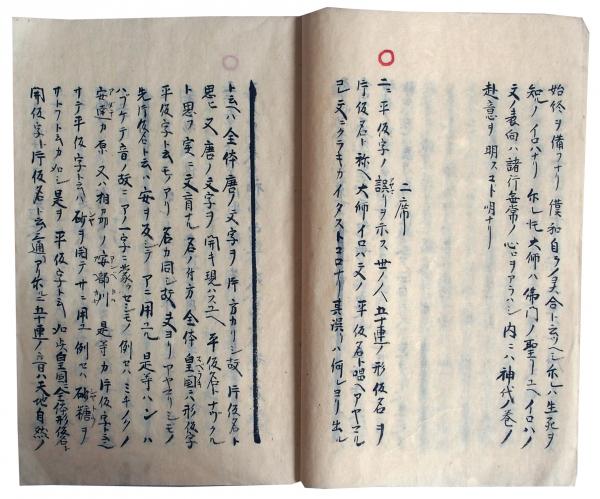 始終ヲ備フナリ 僕和自ラノ天合ト云ヘシ尓レハ生死ヲ
知ノイロハナリ 尓レ圧大師ハ佛門ノ聖ユヘイロハノ
文ノ表向ハ諸行無常ノ心ヲアラハシ 内ニハ神代ノ巻ノ
赴意ヲ明スコト明ナリ
二席
二ニ平仮字ノ誤リヲ示ス 世ノ人五十連ノ形仮名ヲ
片仮名ト称ヘ 大師イロハ文ノ平仮名ト唱ヘアヤマル
己文ニクラキカイタストコロナリ 其誤リハ何レヨリ出ル
ト云ヘハ 全体唐ノ文字ヲ片方カリシ故 片仮名ト
思ヒ 又唐ノ文字ヲ開キ現ハスユヘ平仮名ト ナツクル
ト思フ 実ニ文盲ナル名ノ付方 全体皇国ニハ形仮字
平仮字ト云モアリ 名カ同シ故 丈ヨリアヤマリシモノ
先片仮名ト云ハ安ヲ反シテアニ用ユル 是等ハンハ
ハブケテ音ノ故ニアノ一字ニ蒙ラセシモノ 例セハミチノクノ
安達カ原 又ハ相州ノ安部川 是等カ片仮字ト云
サテ平仮字ト云ハ砂ヲ開テサニ用ユ 例セハ砂糖ヲ
サトフト云カ如シ 是ヲ平仮字ト云 此皇国ニ全体形仮名
開仮字ト片仮名ト云 三通アリ 尓ルニ五十連ノ音ハ天地自然ノ